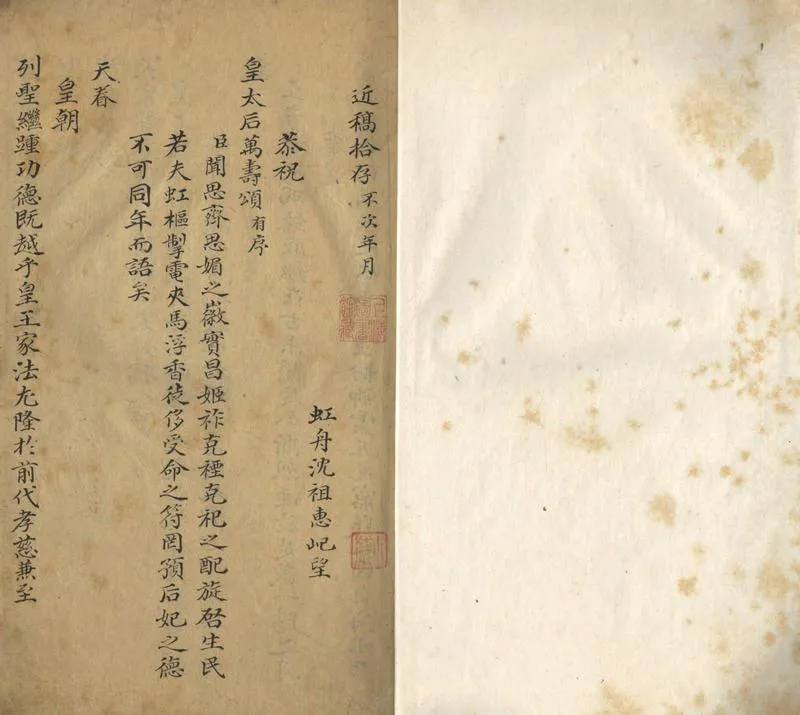 近稿拾存 不次年月
虹舟沈祖惠屺望
恭祝
皇太后萬壽頌 有序
臣聞思齊思媚之徽實昌姬祚克禋克祀之配旋啓生民
若夫虹樞掣電夾馬浮香徒侈受命之符罔預后妃之德
不可同年而語矣
天眷
皇朝
列聖繼踵功德旣越乎皇王家法尤隆於前代孝慈兼至